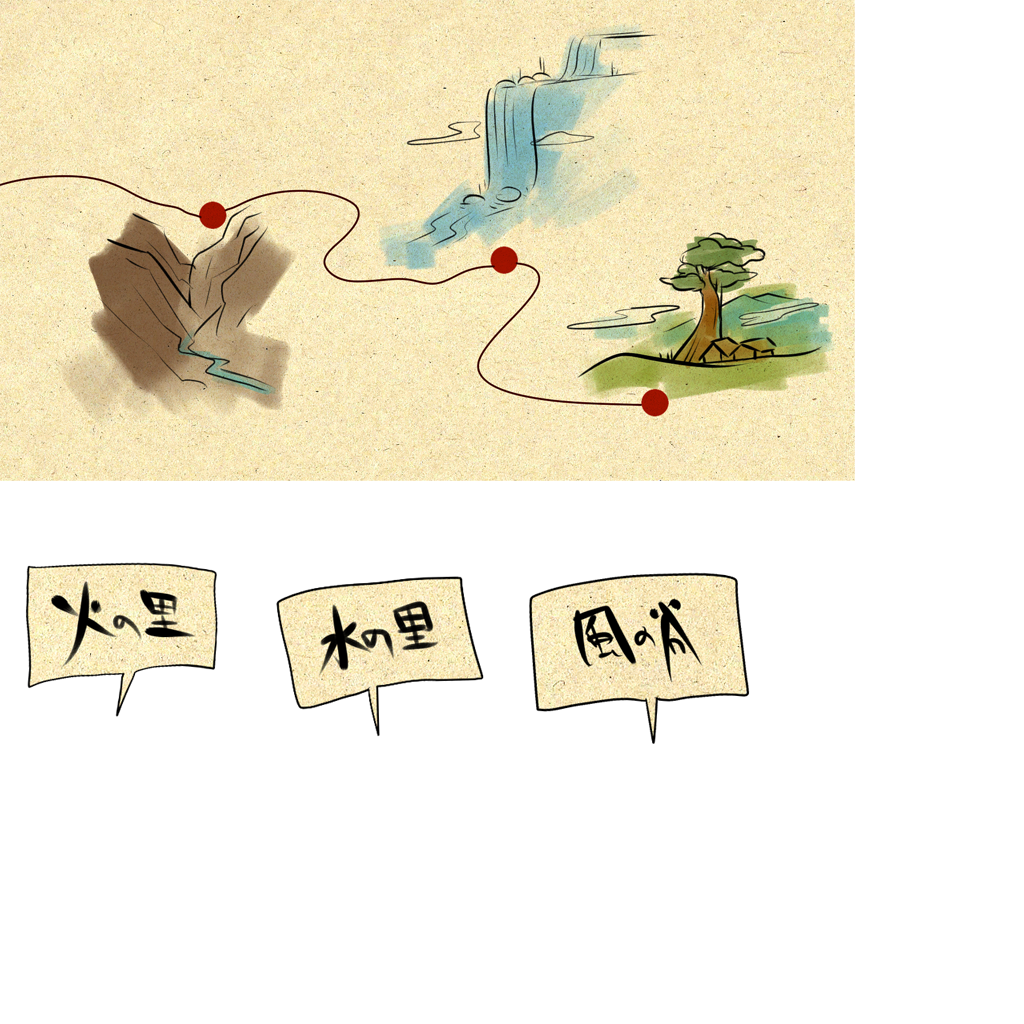 火の里
水の里
風の谷